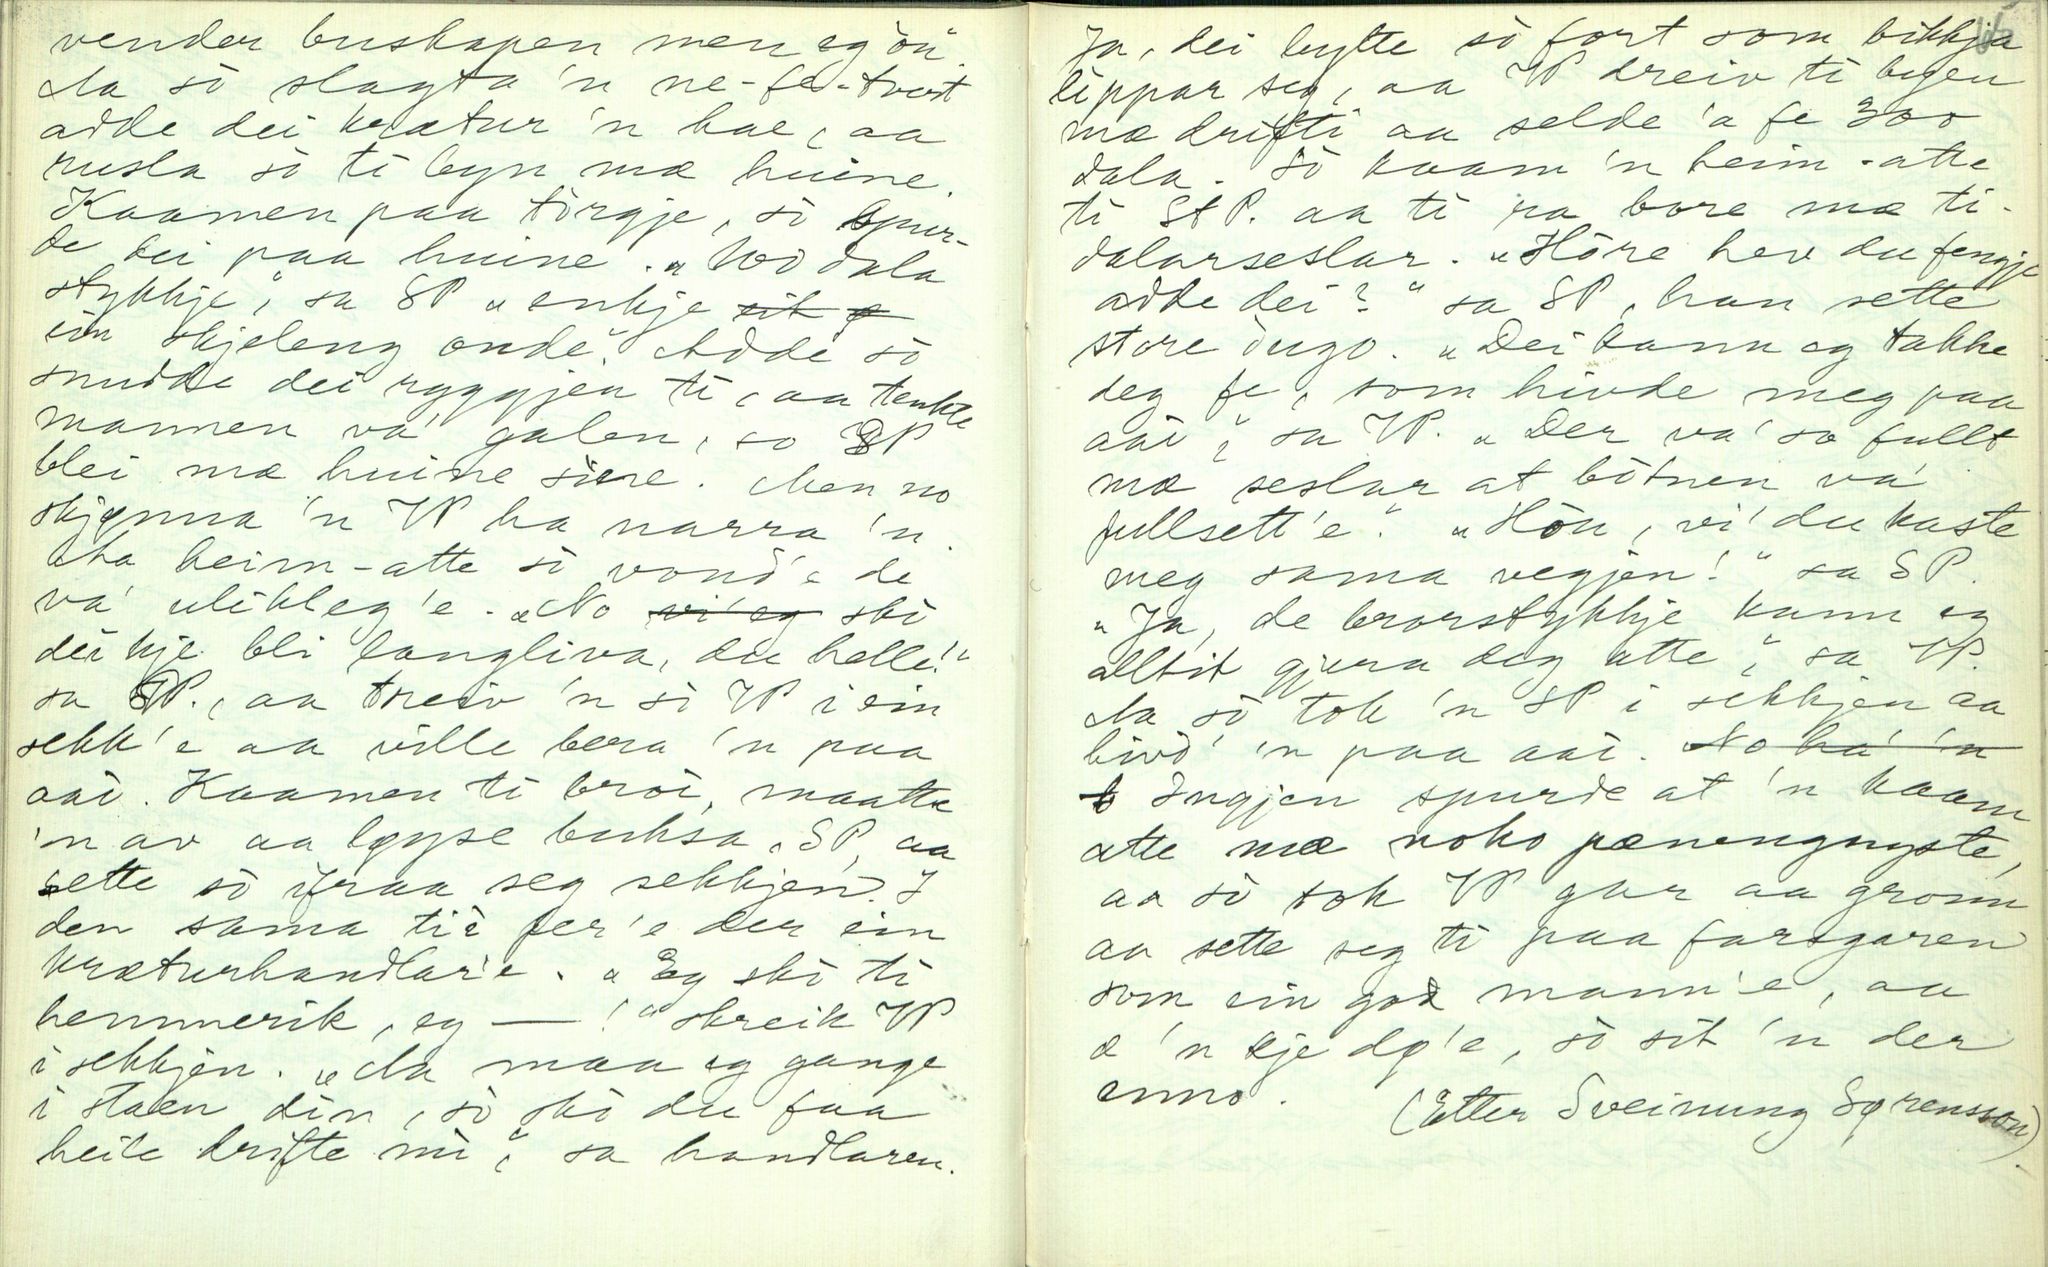 vender buskapen men eg òu".
Aa sò slagta 'n ne-fe-tvert
adde dei krætur 'n hae, aa
rusla sò ti byn mæ huine.
Kaamen paa tòrgje, sò spur-
de dei paa huine. „100 dala
stykkje," sa SP „enkje eit ø
ein skjeleng onde". Adde sò
snudde dei ryggjen ti, aa tenkte
mannen va' galen, so SP
blei mæ huine sine. Men no
skjønna 'n VP ha narra 'n.
Aa heim-atte sò vond'e de
va' ulikleg'e. „No vi' eg ski
dei kje bli langliva, du helle!"
sa SP., aa treiv 'n sò VP i ein
sekk'e aa ville bera 'n paa
aai. Kaamen ti bròi, maatte
'n av aa løyse buksa, SP, aa
sette sò ifraa seg sekkjen. I
den sama tiè fer'e der ein
kræturhandlar'e. „Eg ski ti
hemmerik, eg —!" skreik VP
i sekkjen. „Aa maa eg gange
i staen din, sò ski du faa
heile drifte mi," sa handlaren.
Ja, dei bytte sò fort som bikkja
lippar seg, aa VP dreiv ti bygen
mæ drifti aa selde 'a fe 300
dala. Sò kaam 'n heim-atte
ti StP. aa ti ra bare mæ ti-
dalarseslar. „Hòre hev du fengje
adde dei?" sa SP, han sette
store òugo. „Dei kann eg takke
deg fe, som hivde meg paa
aai," sa VP. „Der va' so fullt
mæ seslar at bòtnen va'
fullsett'e." „Hòu, vi' du kaste
meg sama vegjen!" sa SP.
„Ja, de brorstykkje kann eg
alltit gjera deg atte," sa VP.
Aa sò tok 'n SP i sekkjen aa
hivd' 'n paa aai. No ha' 'n
Ingjen spurde at 'n kaam
atte mæ noko pænengnyste,
aa sò tok VP gar aa gronn
aa sette seg ti paa farsgaren
som ein god mann'e, aa
æ 'n kje dø'e, sò sit 'n der
enno.
(Etter Sveinung Sørensson).